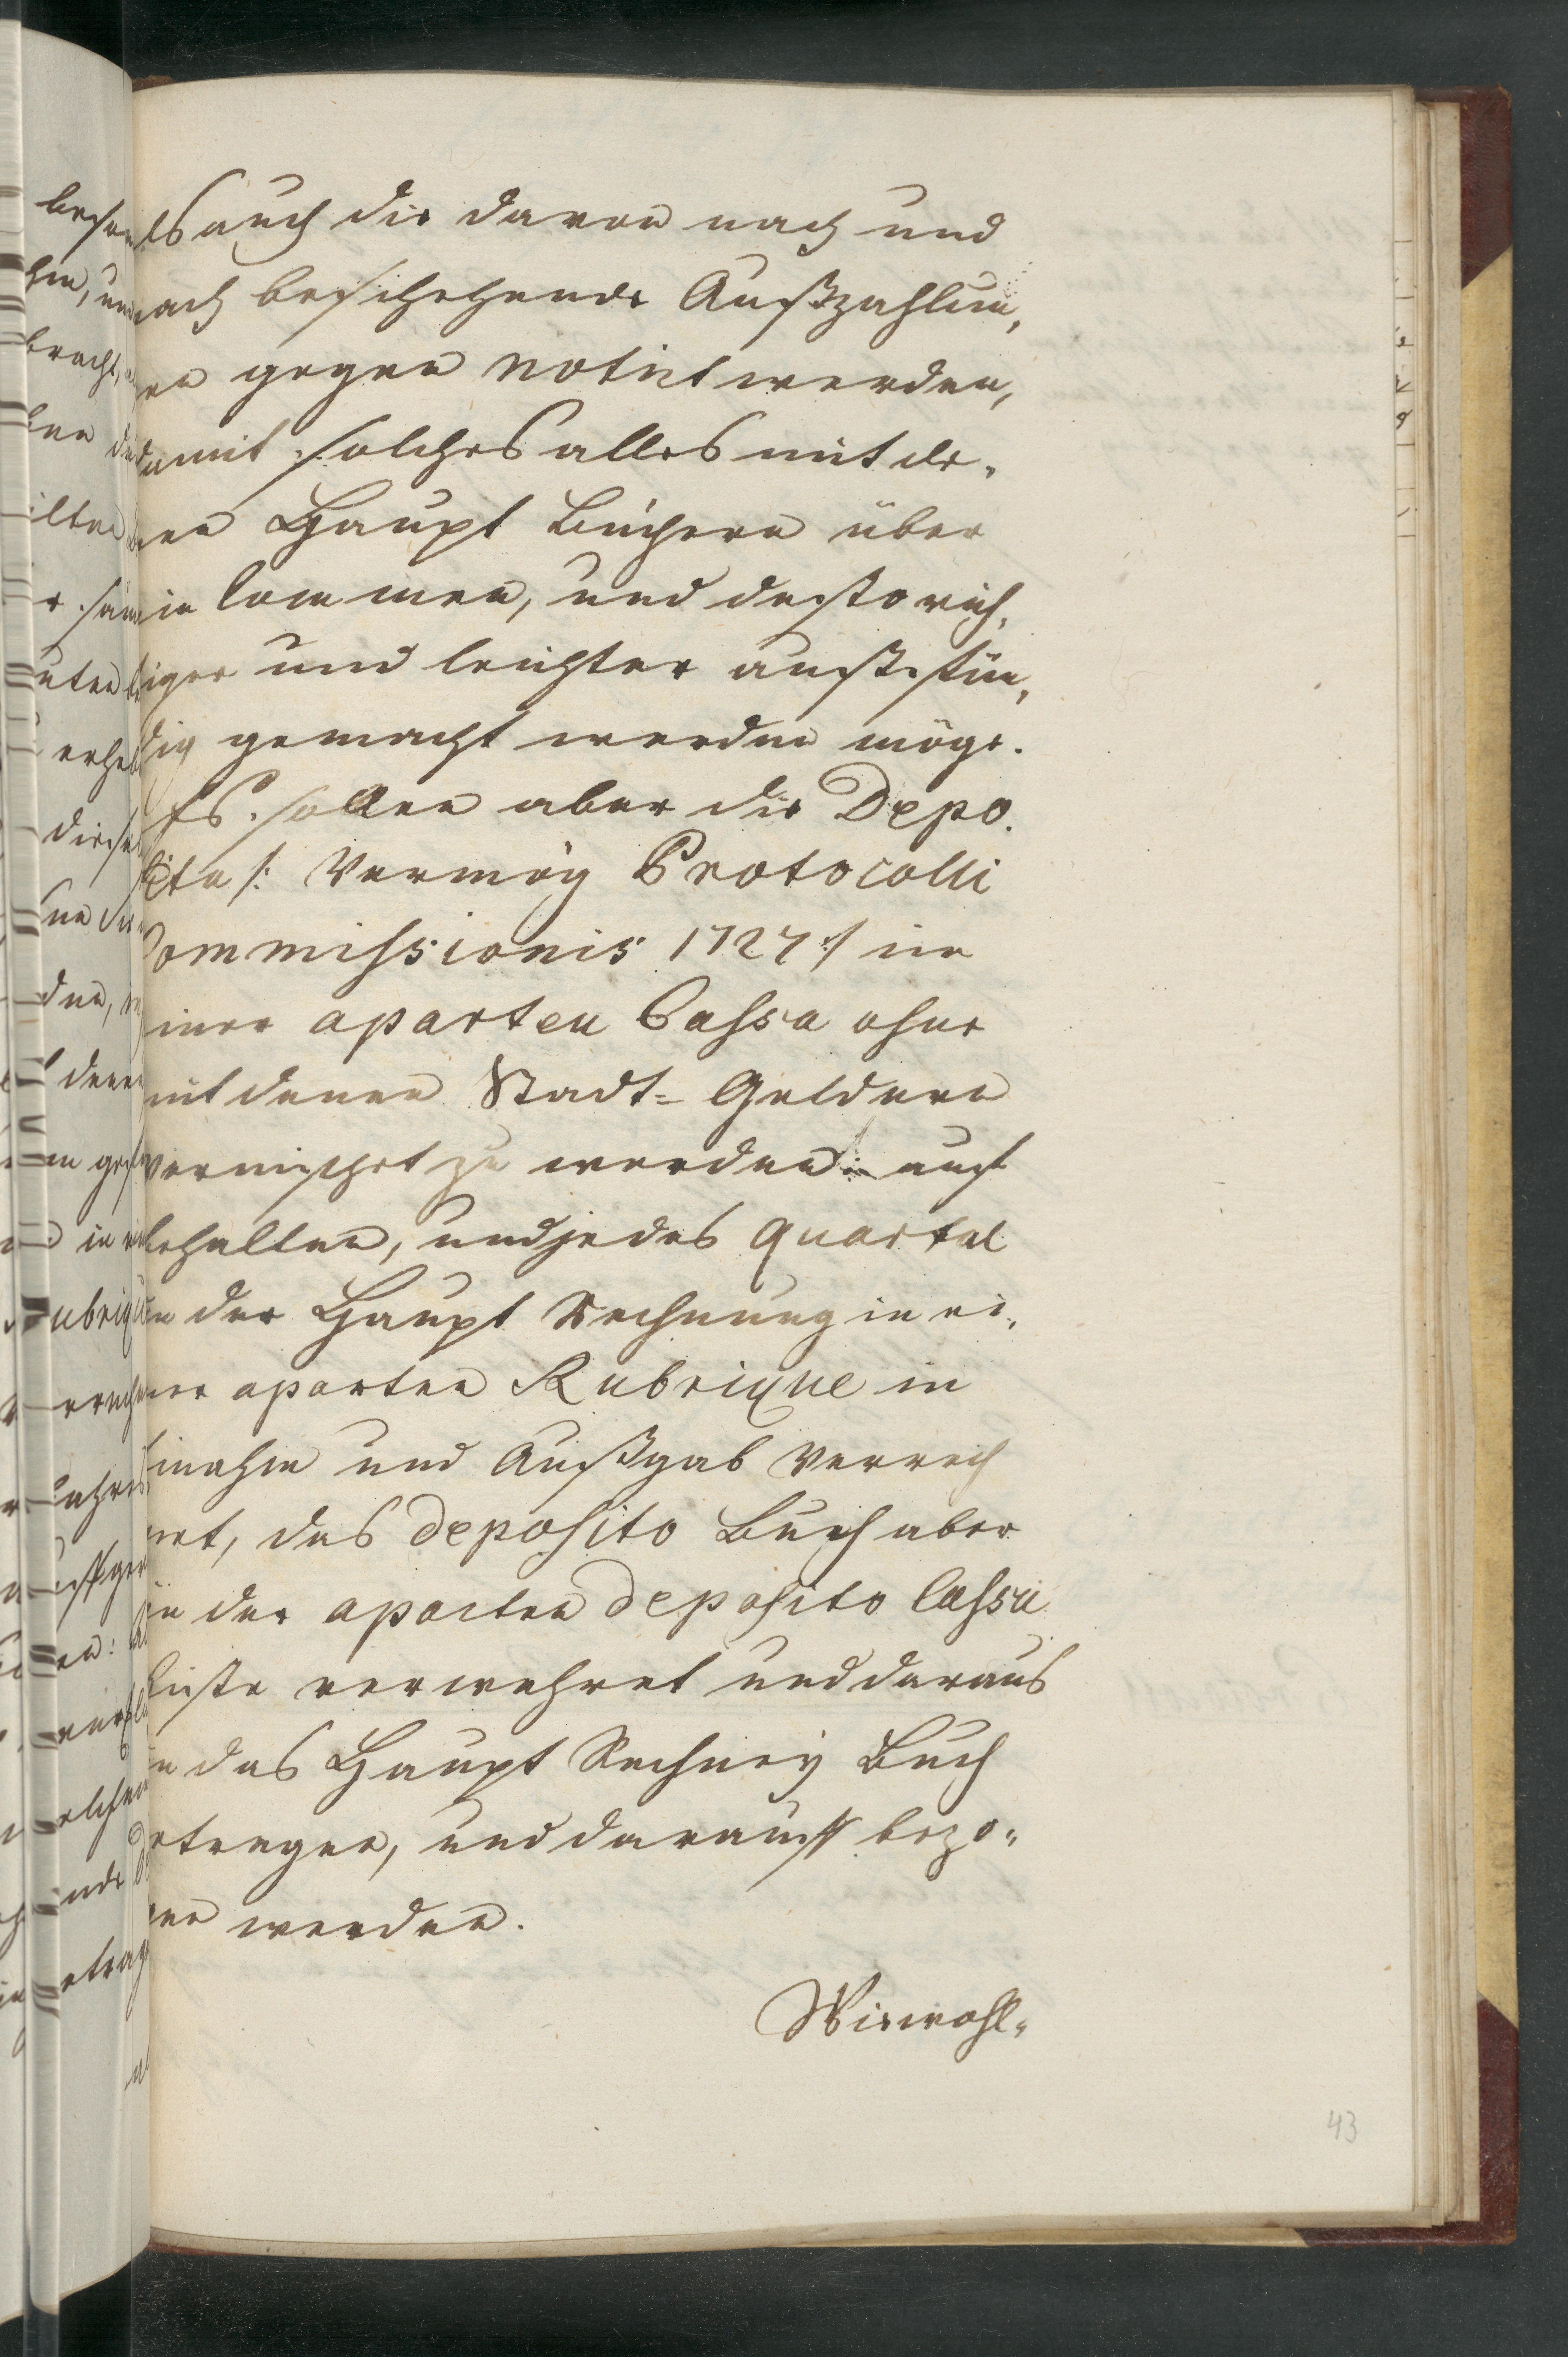 als auch die davon nach und
nach beschehende Außzahlun,
gen gegen notirt werden,
damit solches alles mit de,
nen Haupt Büchern über
ein kommen, und desto rich,
tiger und leichter auß findig
dig gemacht werden möge.
Es sollen aber die Depo,
sita /: Vermög Protocolli
Commissionis 1727 :/ in
einer aparten Cassa ohne
mit denen Stadt= Geldern
vermischet zu werden auf
behalten, und jedes quartal
in der Haupt Rechnung in ei,
ner aparten Rubrique in
Einahm und Außgab Verrech
net, das deposito Buch aber
in der aparten deposito Cassa
Kiste verwahret und daraus
in das Haupt Rechney Buch
getragen, und darauff bezo,
gen werden.
Wiewohl,
43